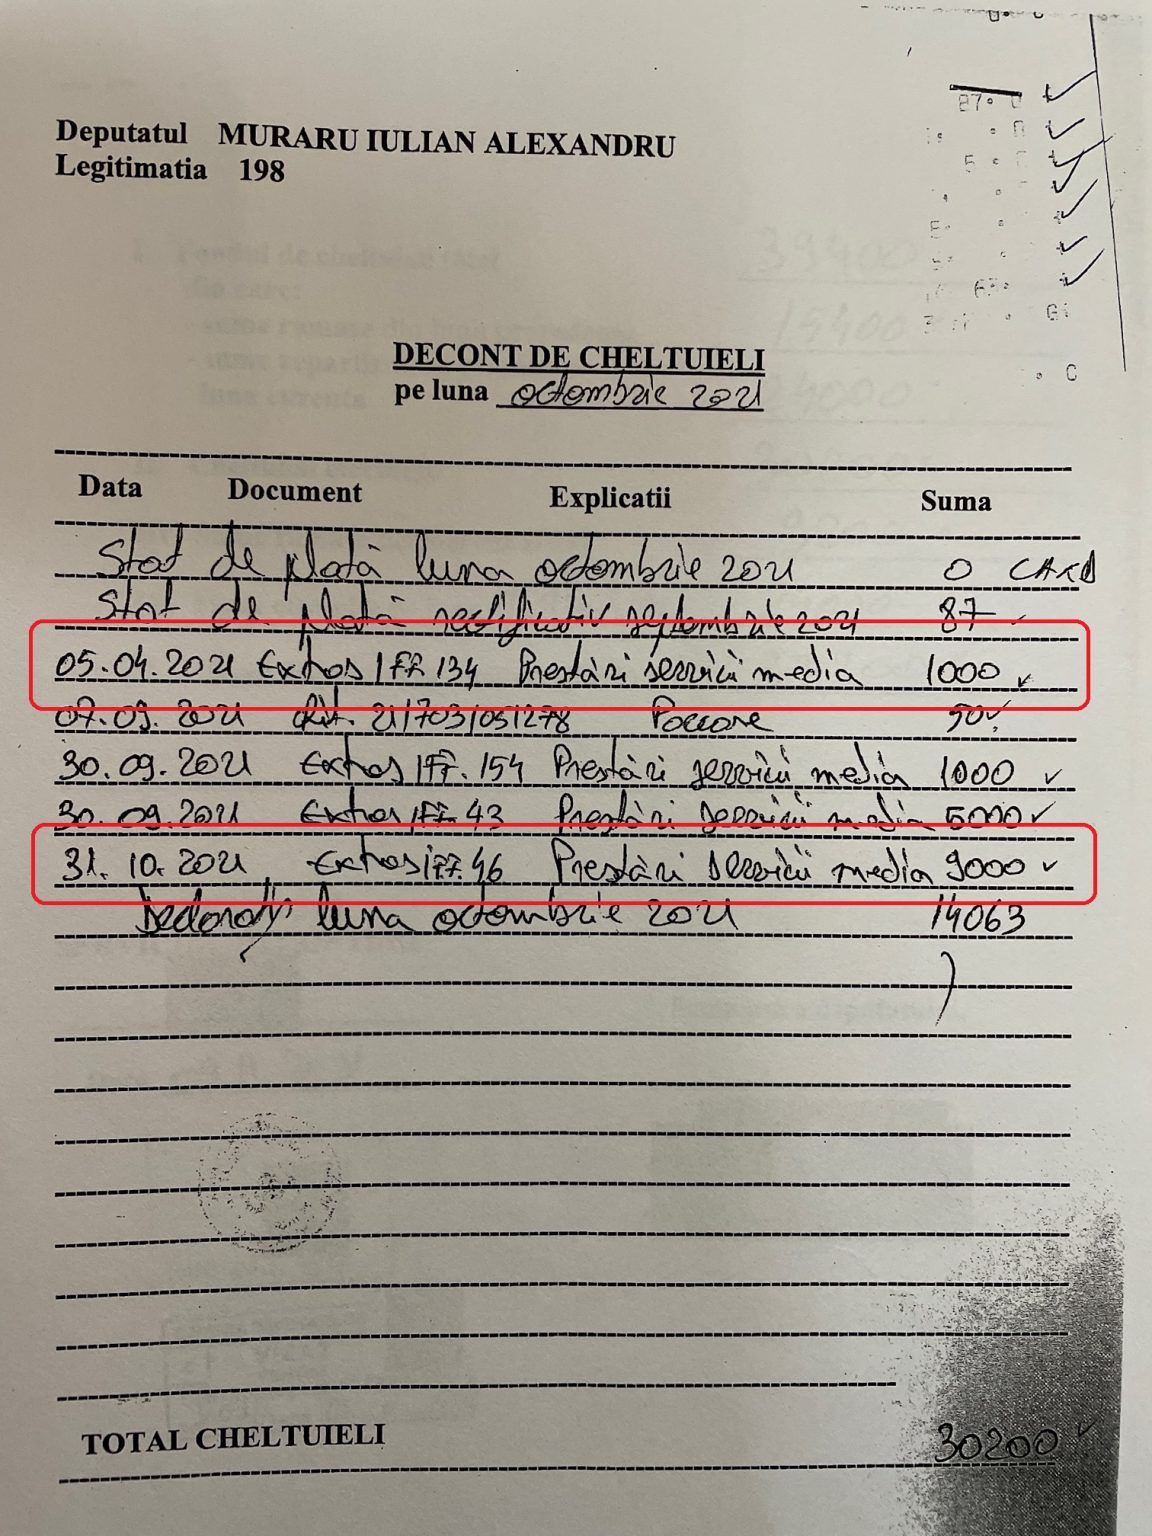 Deputatul MURARU IULIAN ALEXANDRU
Legitimatia 198
DECONT DE CHELTUIELI
pe luna octombrie 2021
Data Document Explicatii Suma
Stat de plată luna octombrie 2021 0 CARD
Stat de plată rectificativ septembrie 2021 87
05.04.2021 Extras/FF 134 Prestări servicii media 1000
07.09.2021 21/703/051278 50
30.09.2021 Extras/FF. 154 Prestări servicii media 1000
30.09.2021 Extras/FF 43 Prestări servicii media 5000
31.10.2021 Extras/FF. 46 Prestări servicii media 9000
luna octombrie 2021 14063
TOTAL CHELTUIELI 30200